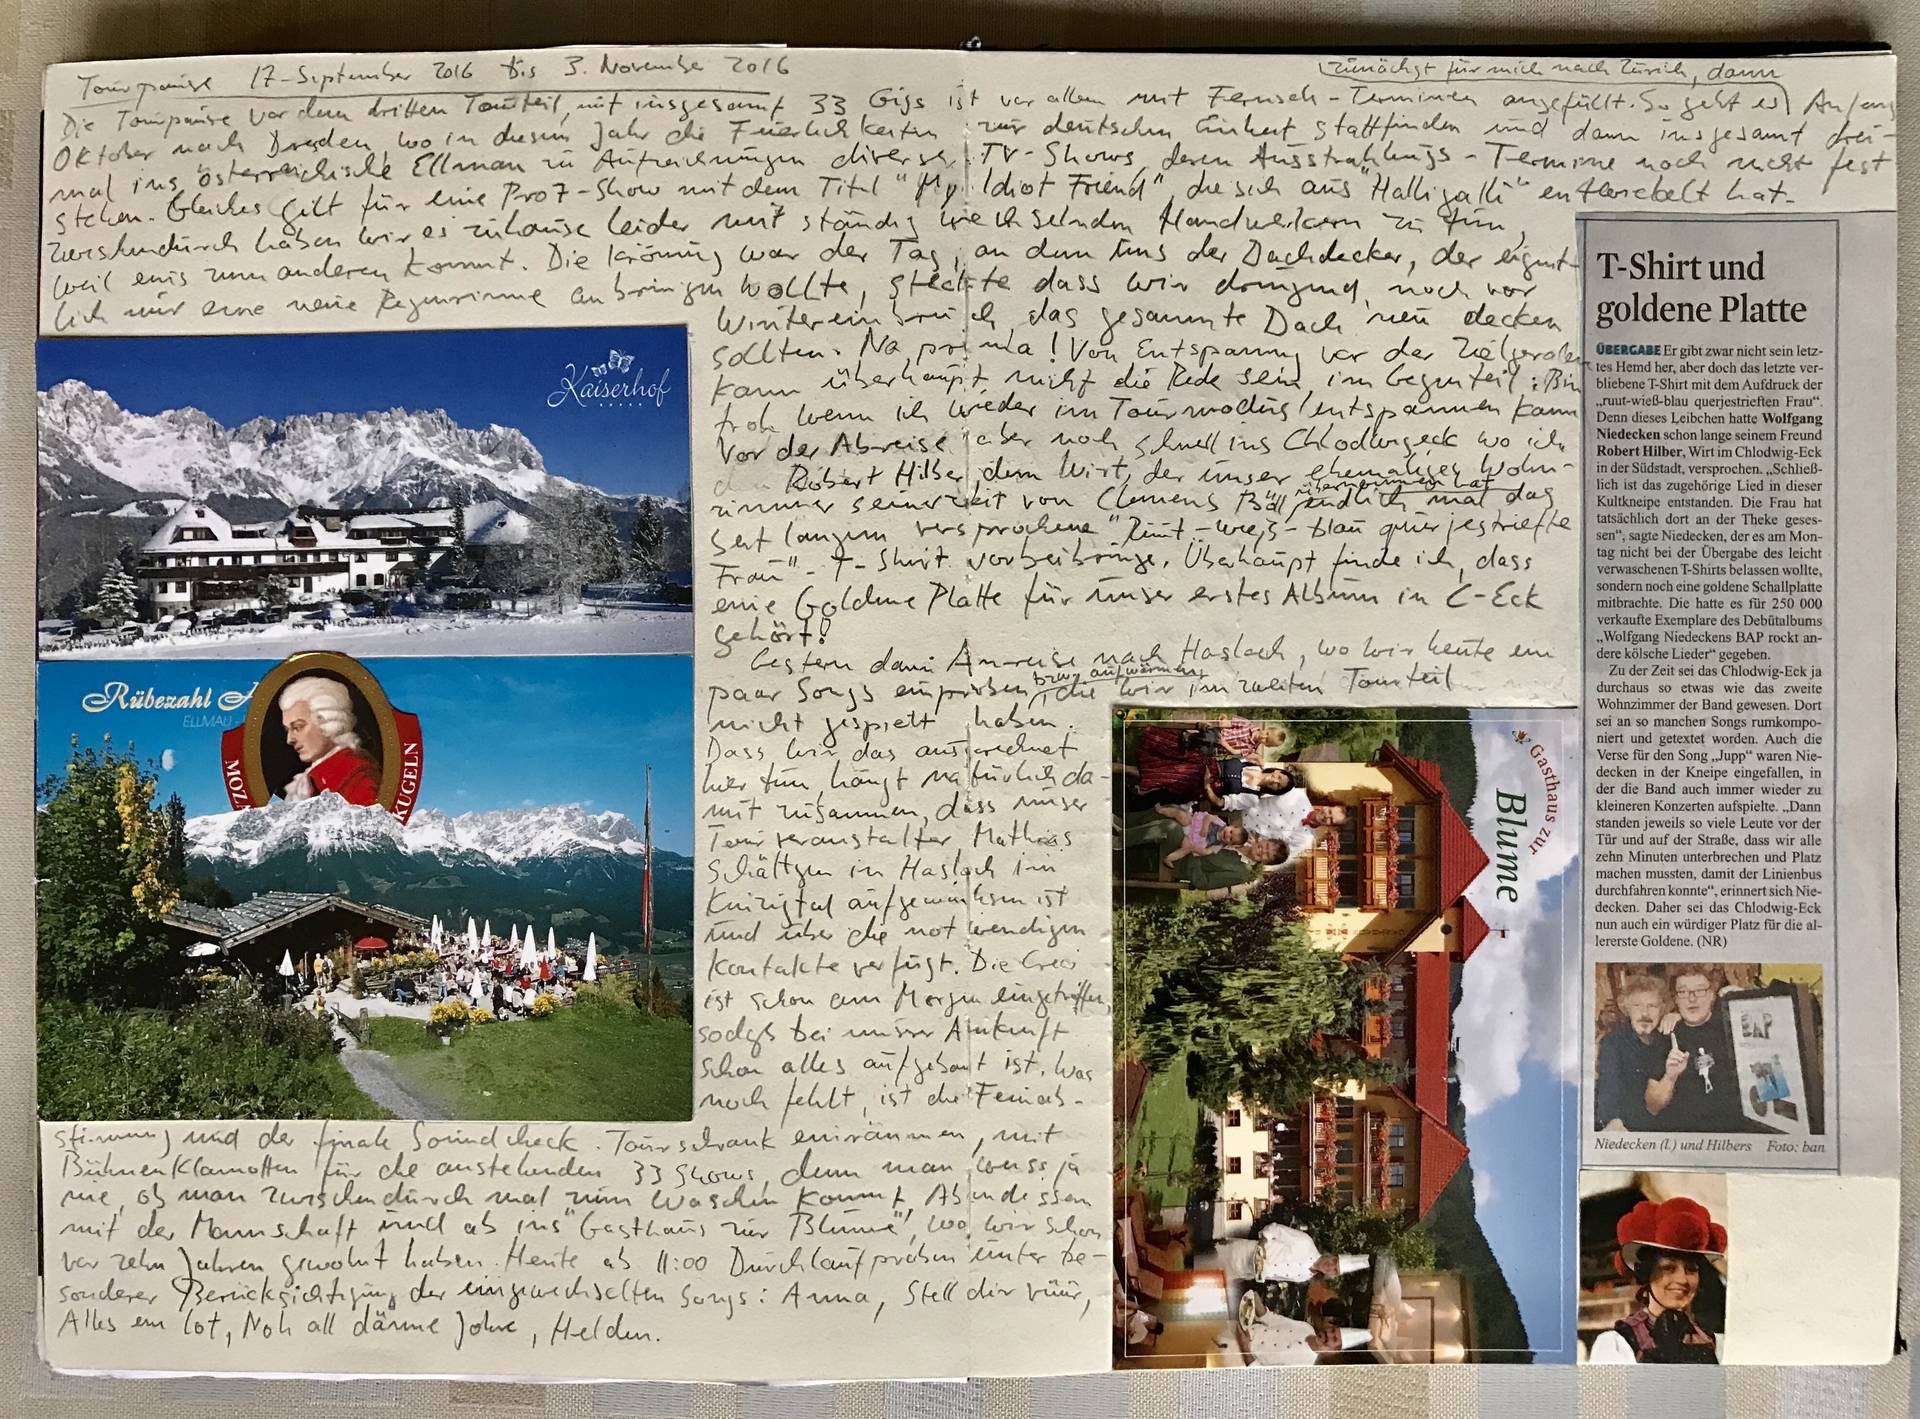 Tourpause 17. September 2016 bis 3. November 2016
zunächst für mich nach Zürich, dann
Die Tourpause vor dem dritten Tourteil, mit insgesamt 33 Gigs ist vor allem mit Fernseh-Terminen angefüllt. So geht es Anfang
Oktober nach Dresden, wo in diesem Jahr die Feierlichkeiten zur deutschen Einheit stattfinden und dann insgesamt drei-
mal ins österreichische Ellmau zu Aufzeichnungen diverser TV-Shows, deren Ausstrahlungs-Termine noch nicht fest
stehen. Gleiches gilt für eine Pro7-Show mit dem Titel "My Idiot Friend", die sich aus "Halligalli" entwickelt hat.
Zwischendurch haben wir es zuhause leider mit ständig wechselnden Handwerkern zu tun,
weil eins zum anderen kommt. Die Krönung war der Tag, an dem uns der Dachdecker, der eigent-
lich nur eine neue Regenrinne anbringen wollte, steckte dass wir dringend, noch vor
Wintereinbruch, das gesamte Dach neu decken
sollten. Na prima! Von Entspannung vor der Zielgeraden
kann überhaupt nicht die Rede sein, im Gegenteil: Bin
froh wenn ich wieder im Tourmodus entspannen kann
Vor der Abreise aber noch schnell ins Chlodwigeck wo ich
Robert Hilber, dem Wirt, der unser ehemaliges Wohn-
zimmer seinerzeit von Clemens Böll übernommen hat endlich mal das
seit langem versprochene "Ruut-wieß-blau querjestriefte
Frau"-T-Shirt vorbeibringe. Überhaupt finde ich, dass
eine Goldene Platte für unser erstes Album in C-Eck
gehört!
Gestern dann Anreise nach Haslach, wo wir heute ein
paar Songs einproben bzw. aufwärmen, die wir im zweiten Tourteil
nicht gespielt haben.
Dass wir das ausgerechnet
hier tun, hängt natürlich da-
mit zusammen, dass unser
Tourveranstalter Mathias
Schättgen in Haslach im
Kinzigtal aufgewachsen ist
und über die notwendigen
Kontakte verfügt. Die Crew
ist schon am Morgen eingetroffen,
sodass bei unserer Ankunft
schon alles aufgebaut ist. Was
noch fehlt, ist die Feinab-
stimmung und der finale Soundcheck. Tourschrank einräumen, mit
Bühnenklamotten für die anstehenden 33 Shows, denn man weiss ja
nie, ob man zwischendurch mal zum Waschen kommt, Abendessen
mit der Mannschaft und ab ins "Gasthaus zur Blume", wo wir schon
vor zehn Jahren gewohnt haben. Heute ab 11:00 Durchlaufproben unter be-
sonderer Berücksichtigung der eingewechselten Songs: Anna, Stell dir vüür,
Alles em Lot, Noh all dänne Johre, Helden.
Kaiserhof
Rübezahl A
ELLMAU -
MOZA
KUGELN
Gasthaus zur
Blume
T-Shirt und
goldene Platte
ÜBERGABE Er gibt zwar nicht sein letz-
tes Hemd her, aber doch das letzte ver-
bliebene T-Shirt mit dem Aufdruck der
„ruut-wieß-blau querjestrieften Frau“.
Denn dieses Leibchen hatte Wolfgang
Niedecken schon lange seinem Freund
Robert Hilber, Wirt im Chlodwig-Eck
in der Südstadt, versprochen. „Schließ-
lich ist das zugehörige Lied in dieser
Kultkneipe entstanden. Die Frau hat
tatsächlich dort an der Theke geses-
sen“, sagte Niedecken, der es am Mon-
tag nicht bei der Übergabe des leicht
verwaschenen T-Shirts belassen wollte,
sondern noch eine goldene Schallplatte
mitbrachte. Die hatte es für 250 000
verkaufte Exemplare des Debütalbums
„Wolfgang Niedeckens BAP rockt an-
dere kölsche Lieder“ gegeben.
Zu der Zeit sei das Chlodwig-Eck ja
durchaus so etwas wie das zweite
Wohnzimmer der Band gewesen. Dort
sei an so manchen Songs rumkompo-
niert und getextet worden. Auch die
Verse für den Song „Jupp“ waren Nie-
decken in der Kneipe eingefallen, in
der die Band auch immer wieder zu
kleineren Konzerten aufspielte. „Dann
standen jeweils so viele Leute vor der
Tür und auf der Straße, dass wir alle
zehn Minuten unterbrechen und Platz
machen mussten, damit der Linienbus
durchfahren konnte“, erinnert sich Nie-
decken. Daher sei das Chlodwig-Eck
nun auch ein würdiger Platz für die al-
lererste Goldene. (NR)
BAP
Niedecken (l.) und Hilbers Foto: ban